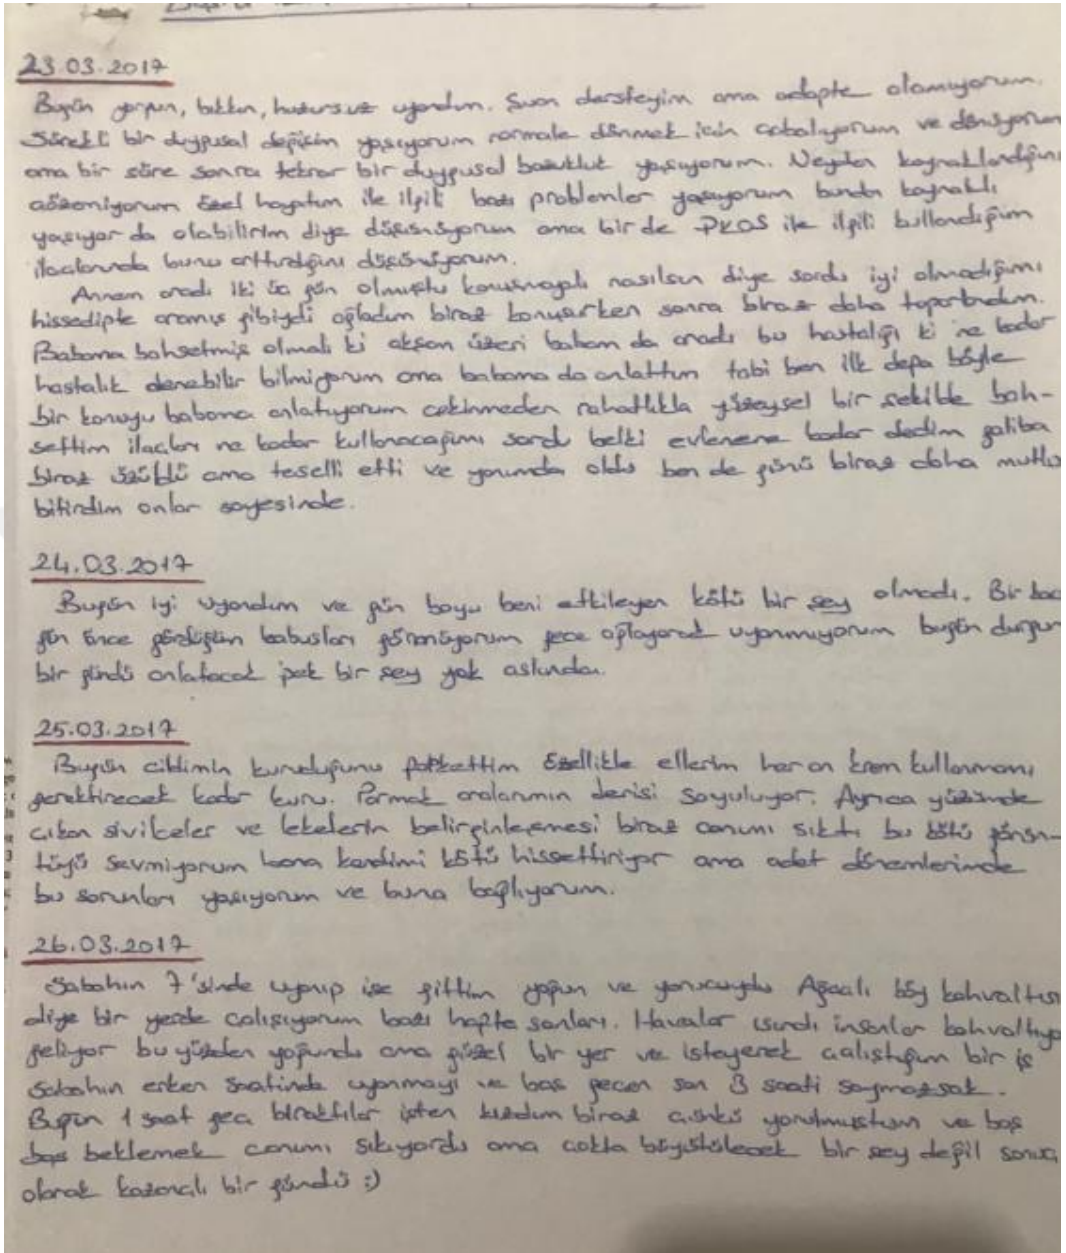 23.03.2017
Bugün yorgun, bıkkın, huzursuz uyandım. Şuan dersteyim ama adapte olamıyorum.
Sürekli bir duygusal değişim yaşıyorum normale dönmek için çabalıyorum ve dönüyorum
ama bir süre sonra tekrar bir duygusal bozukluk yaşıyorum. Neyden kaynaklandığını
çözemiyorum özel hayatım ile ilgili bazı problemler yaşıyorum bundan kaynaklı
yaşıyor da olabilirim diye düşünüyorum ama bir de PKOS ile ilgili kullandığım
ilaçlarında bunu arttırdığını düşünüyorum.
Annem aradı iki üç gün olmuştu konuşmayalı nasılsın diye sordu iyi olmadığımı
hissedipte aramış gibiydi ağladım biraz konuşurken sonra biraz daha toparlandım.
Babama bahsetmiş olmalı ki akşam üzeri babam da aradı bu hastalığı ki ne kadar
hastalık denebilir bilmiyorum ama babama da anlattım tabi ben ilk defa böyle
bir konuyu babama anlatıyorum çekinmeden rahatlıkla yüzeysel bir şekilde bah-
settim ilaçları ne kadar kullanacağımı sordu belki evlenene kadar dedim galiba
biraz üzüldü ama teselli etti ve yanımda oldu ben de günü biraz daha mutlu
bitirdim onlar sayesinde.
24.03.2017
Bugün iyi uyandım ve gün boyu beni etkileyen kötü bir şey olmadı. Bir kaç
gün önce gördüğüm kabusları görmüyorum gece ağlayarak uyanmıyorum bugün durgun
bir gündü anlatacak pek bir şey yok aslında.
25.03.2017
Bugün cildimin kuruduğunu farkettim özellikle ellerim her an krem kullanmamı
gerektirecek kadar kuru. Parmak aralarımın derisi soyuluyor. Ayrıca yüzümde
çıkan sivilceler ve lekelerin belirginleşmesi biraz canımı sıktı bu kötü görün-
tüyü sevmiyorum bana kendimi kötü hissettiriyor ama adet dönemlerimde
bu sorunları yaşıyorum ve buna bağlıyorum.
26.03.2017
Sabahın 7'sinde uyanıp işe gittim yoğun ve yorucuydu Ağaçlı köy kahvaltısı
diye bir yerde çalışıyorum bazı hafta sonları. Havalar ısındı insanlar kahvaltıya
geliyor bu yüzden yoğundu ama güzel bir yer ve isteyerek çalıştığım bir iş
sabahın erken saatinde uyanmayı ve boş geçen son 3 saati saymazsak.
Bugün 1 saat geç bıraktılar işten kızdım biraz çünkü yorulmuştum ve boş
boş beklemek canımı sıkıyordu ama çokta büyütülecek bir şey değil sonuç
olarak kazançlı bir gündü :)